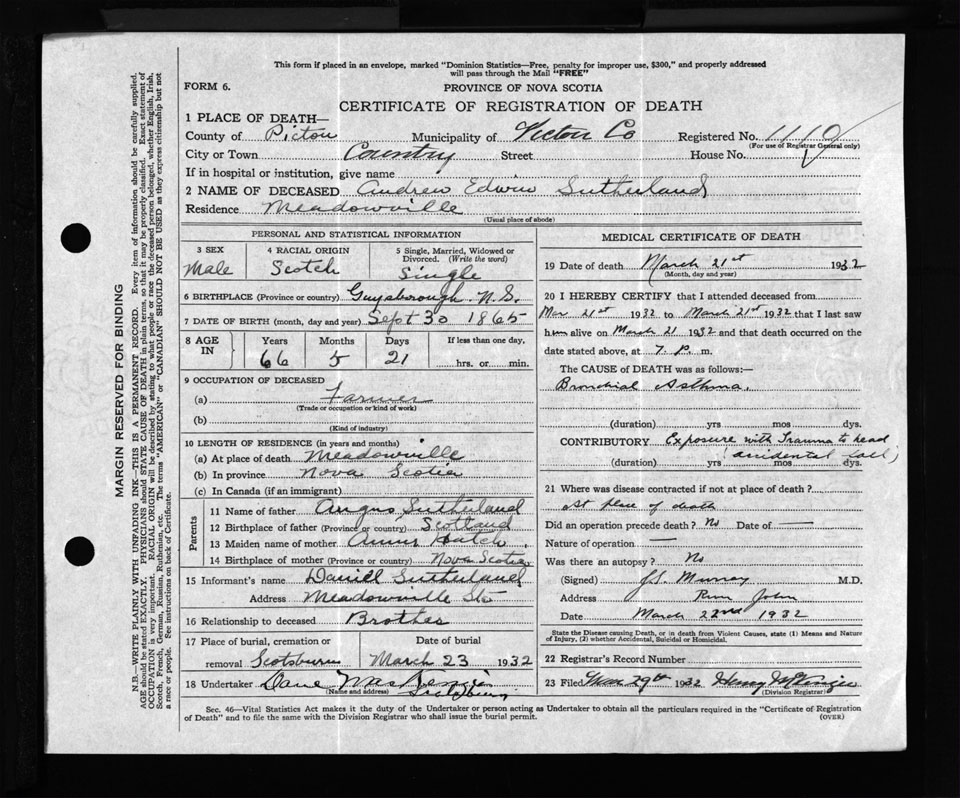 This form if placed in an envelope, marked "Dominion Statistics—Free, penalty for improper use, $300," and properly addressed
will pass through the Mail "FREE"
FORM 6.
PROVINCE OF NOVA SCOTIA
CERTIFICATE OF REGISTRATION OF DEATH
1 PLACE OF DEATH—
County of Pictou Municipality of Pictou Co Registered No. 1110
(For use of Registrar General only)
City or Town Country Street House No.
If in hospital or institution, give name
2 NAME OF DECEASED Andrew Edwin Sutherland
Residence Meadowville
(Usual place of abode)
PERSONAL AND STATISTICAL INFORMATION
3 SEX 4 RACIAL ORIGIN 5 Single, Married, Widowed or
Divorced. (Write the word)
Male Scotch Single
6 BIRTHPLACE (Province or country) Guysborough. N.S.
7 DATE OF BIRTH (month, day and year) Sept 30 1865
8 AGE IN Years Months Days If less than one day,
66 5 21 hrs. or min.
9 OCCUPATION OF DECEASED
(a) Farmer
(Trade or occupation or kind of work)
(b)
(Kind of industry)
10 LENGTH OF RESIDENCE (in years and months)
(a) At place of death Meadowville
(b) In province Nova Scotia
(c) In Canada (if an immigrant)
Parents
11 Name of father Angus Sutherland
12 Birthplace of father (Province or country) Scotland
13 Maiden name of mother Hatch
14 Birthplace of mother (Province or country) Nova Scotia
15 Informant's name Daniel Sutherland
Address Meadowville Sta
16 Relationship to deceased Brother
17 Place of burial, cremation or Date of burial
removal Scotsburn March 23 1932
18 Undertaker Dane
(Name and address) Scotsburn
MEDICAL CERTIFICATE OF DEATH
19 Date of death March 21st 1932
(Month, day and year)
20 I HEREBY CERTIFY that I attended deceased from
Mar 21st 1932 to March 21st 1932 that I last saw
him alive on March 21 1932 and that death occurred on the
date stated above, at 7. P. m.
The CAUSE OF DEATH was as follows:—
Bronchial Asthma.
(duration) yrs mos dys.
CONTRIBUTORY Exposure with Trauma to head
(accidental fall)
(duration) yrs mos dys.
21 Where was disease contracted if not at place of death?
At place of death
Did an operation precede death? No Date of —
Nature of operation —
Was there an autopsy? No
(Signed) J.S. Murray M.D.
Address River John
Date March 22nd 1932
State the Disease causing Death, or in death from Violent Causes, state (1) Means and Nature
of Injury, (2) whether Accidental, Suicidal or Homicidal.
22 Registrar's Record Number
23 Filed Mar 29th 1932 Henry
(Division Registrar)
Sec. 46—Vital Statistics Act makes it the duty of the Undertaker or person acting as Undertaker to obtain all the particulars required in the "Certificate of Registration
of Death" and to file the same with the Division Registrar who shall issue the burial permit.
(OVER)
MARGIN RESERVED FOR BINDING
N.B.—WRITE PLAINLY WITH UNFADING INK—THIS IS A PERMANENT RECORD. Every item of information should be carefully supplied.
AGE should be stated EXACTLY. PHYSICIANS should STATE CAUSE OF DEATH in plain terms, so that it may be properly classified. Exact statement of
OCCUPATION is very important. RACIAL ORIGIN will be described by stating to what people or race the deceased person belonged, whether English, Irish,
Scotch, French, German, Russian, Ruthenian, etc. The terms "AMERICAN" or "CANADIAN" SHOULD NOT BE USED as they express citizenship but not
a race or people. See instructions on back of Certificate.